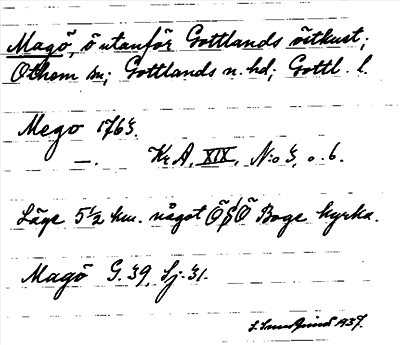 Magö, ö utanför Gottlands östkust;
Othem sn; Gottlands n. hd; Gottl. l.
Mego 1763.
—. Kr A, XIX, N:o 3, o. 6.
Läge 5 1/2 km. något ÖSÖ Boge kyrka.
Magö G. 39, Sj. 31.
1937.